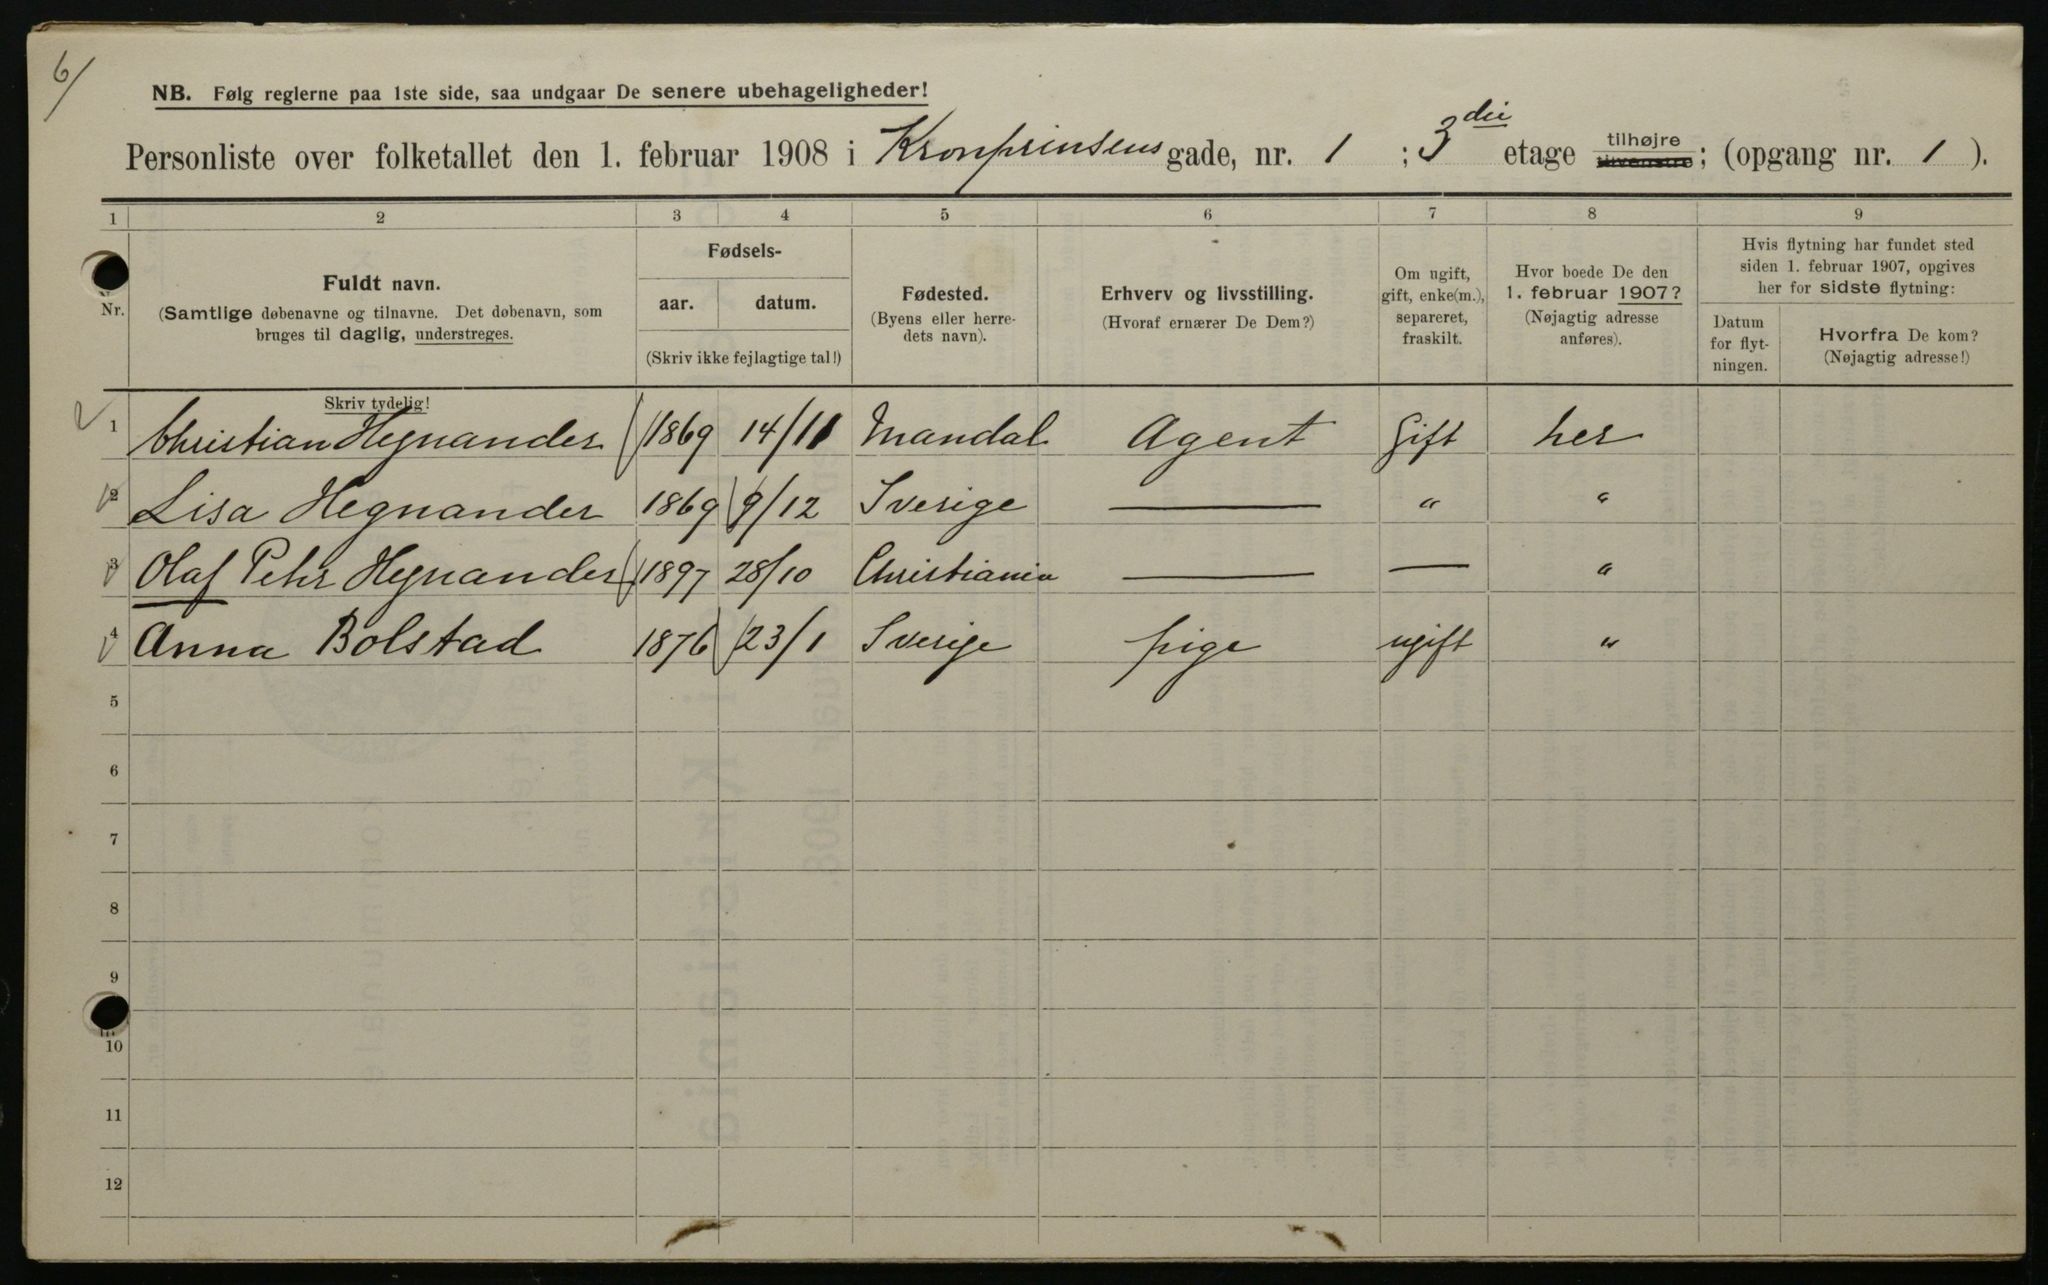 6/
NB. Følg reglerne paa 1ste side, saa undgaar De senere ubehageligheder!
Personliste over folketallet den 1. februar 1908 i Kronprinsens gade, nr. 1 ; 3die etage tilhøjre tilvenstre; (opgang nr. 1 ).
1 2 3 4 5 6 7 8 9
Nr.
Fuldt navn.
(Samtlige døbenavne og tilnavne. Det døbenavn, som
bruges til daglig, understreges.
Fødsels-
aar. datum.
(Skriv ikke fejlagtige tal!)
Fødested.
(Byens eller herre-
dets navn).
Erhverv og livsstilling.
(Hvoraf ernærer De Dem?)
Om ugift,
gift, enke(m.),
separeret,
fraskilt.
Hvor boede De den
1. februar 1907?
(Nøjagtig adresse
anføres).
Hvis flytning har fundet sted
siden 1. februar 1907, opgives
her for sidste flytning:
Datum
for flyt-
ningen.
Hvorfra De kom?
(Nøjagtig adresse!)
Skriv tydelig!
1 Christian Hegnander 1869 14/11 Mandal Agent Gift her
2 Lisa Hegnander 1869 9/12 Sverige — " "
3 Olaf Pehr Hegnander 1897 28/10 Christiania — — "
4 Anna Bolstad 1876 23/1 Sverige pige ugift "
5
6
7
8
9
10
11
12